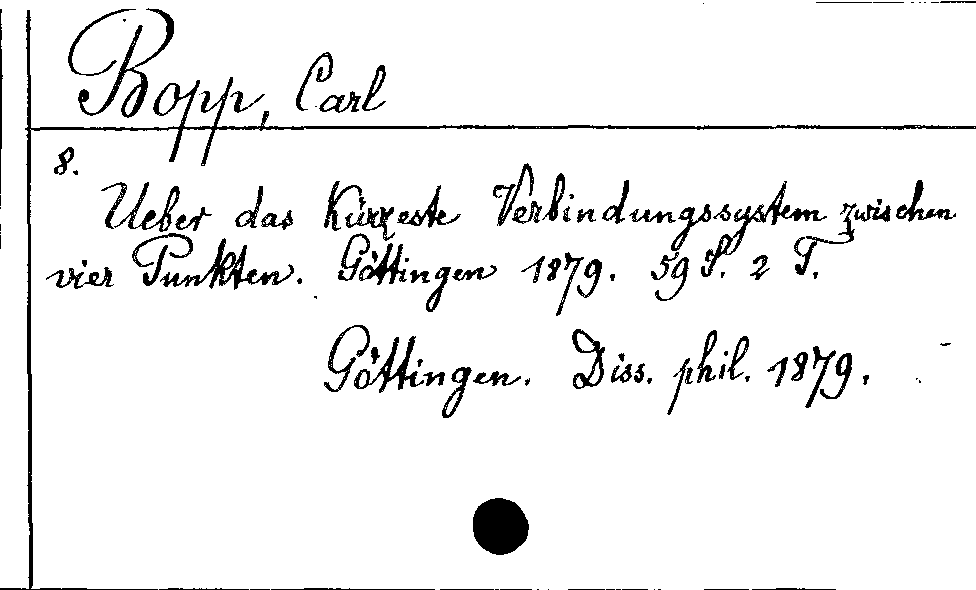 Bopp, Carl
8.
Ueber das kürzeste Verbindungssystem zwischen
vier Punkten. Göttingen 1879. 59 S. 2 T.
Göttingen. Diss. phil. 1879.